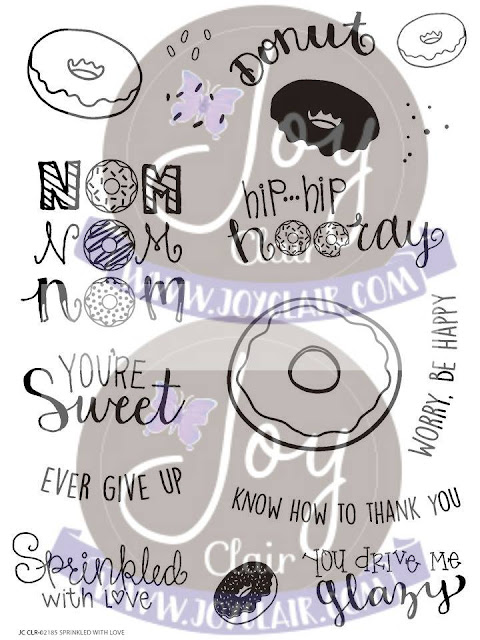 Donut
NOM
NOM
nom
hip...hip
hooray
YOU'RE
Sweet
WORRY, BE HAPPY
EVER GIVE UP
KNOW HOW TO THANK YOU
Sprinkled
with LOVE
YOU DRIVE ME
glazy
Joy
Clair
WWW.JOYCLAIR.COM
Joy
Clair
WWW.JOYCLAIR.COM
JC CLR-02185 SPRINKLED WITH LOVE